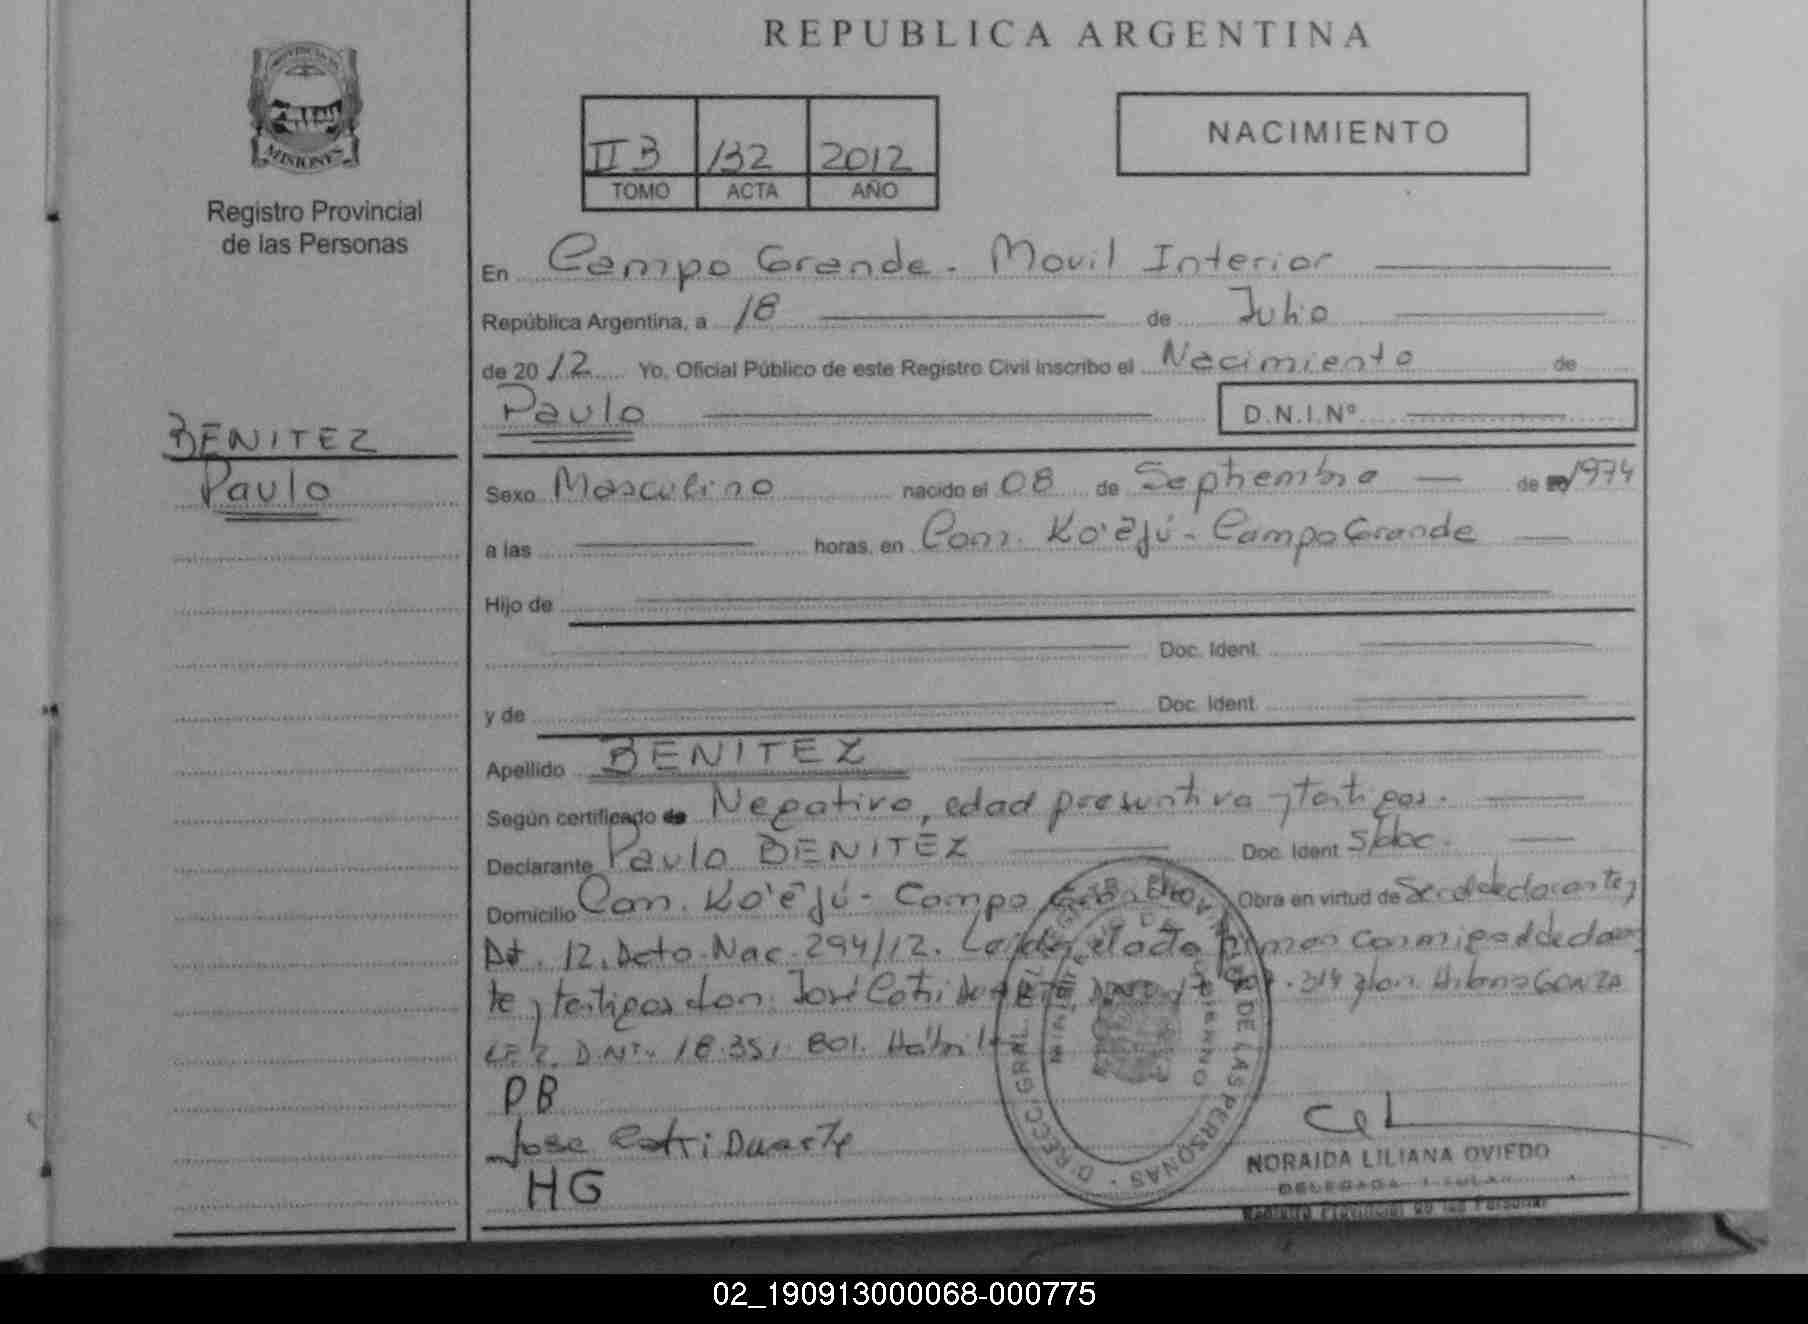 REPUBLICA ARGENTINA
PROVINCIA DE
MISIONES
Registro Provincial
de las Personas
II B 132 2012
TOMO ACTA AÑO
NACIMIENTO
En Campo Grande - Movil Interior
República Argentina, a 18 de Julio
de 2012 Yo, Oficial Público de este Registro Civil inscribo el Nacimiento de
Paulo D.N.I.Nº
BENITEZ
Paulo
Sexo Masculino nacido el 08 de Septiembre de 1974
a las horas, en Com. Ko'ẽjú - Campo Grande
Hijo de
Doc. Ident.
y de Doc. Ident.
Apellido BENITEZ
Según certificado de Negativo, edad presuntiva y testigos.
Declarante Paulo BENITEZ Doc. Ident s/doc.
Domicilio Com. Ko'ẽjú - Campo Obra en virtud de Ser el declarante y
Art. 12. Dcto. Nac. 294/12. Leida el acta firman conmigo el declaran
te y testigos don José Catri Hilario GONZA
LEZ D.N.I. 18.351.801.
PB
Jose Catri Duarte
HG
DIRECC. GRAL. REGISTRO PROVINCIAL DE LAS PERSONAS
MINISTERIO DE GOBIERNO
NORAIDA LILIANA OVIEDO
DELEGADA TITULAR
Registro Provincial de las Personas
02_190913000068-000775